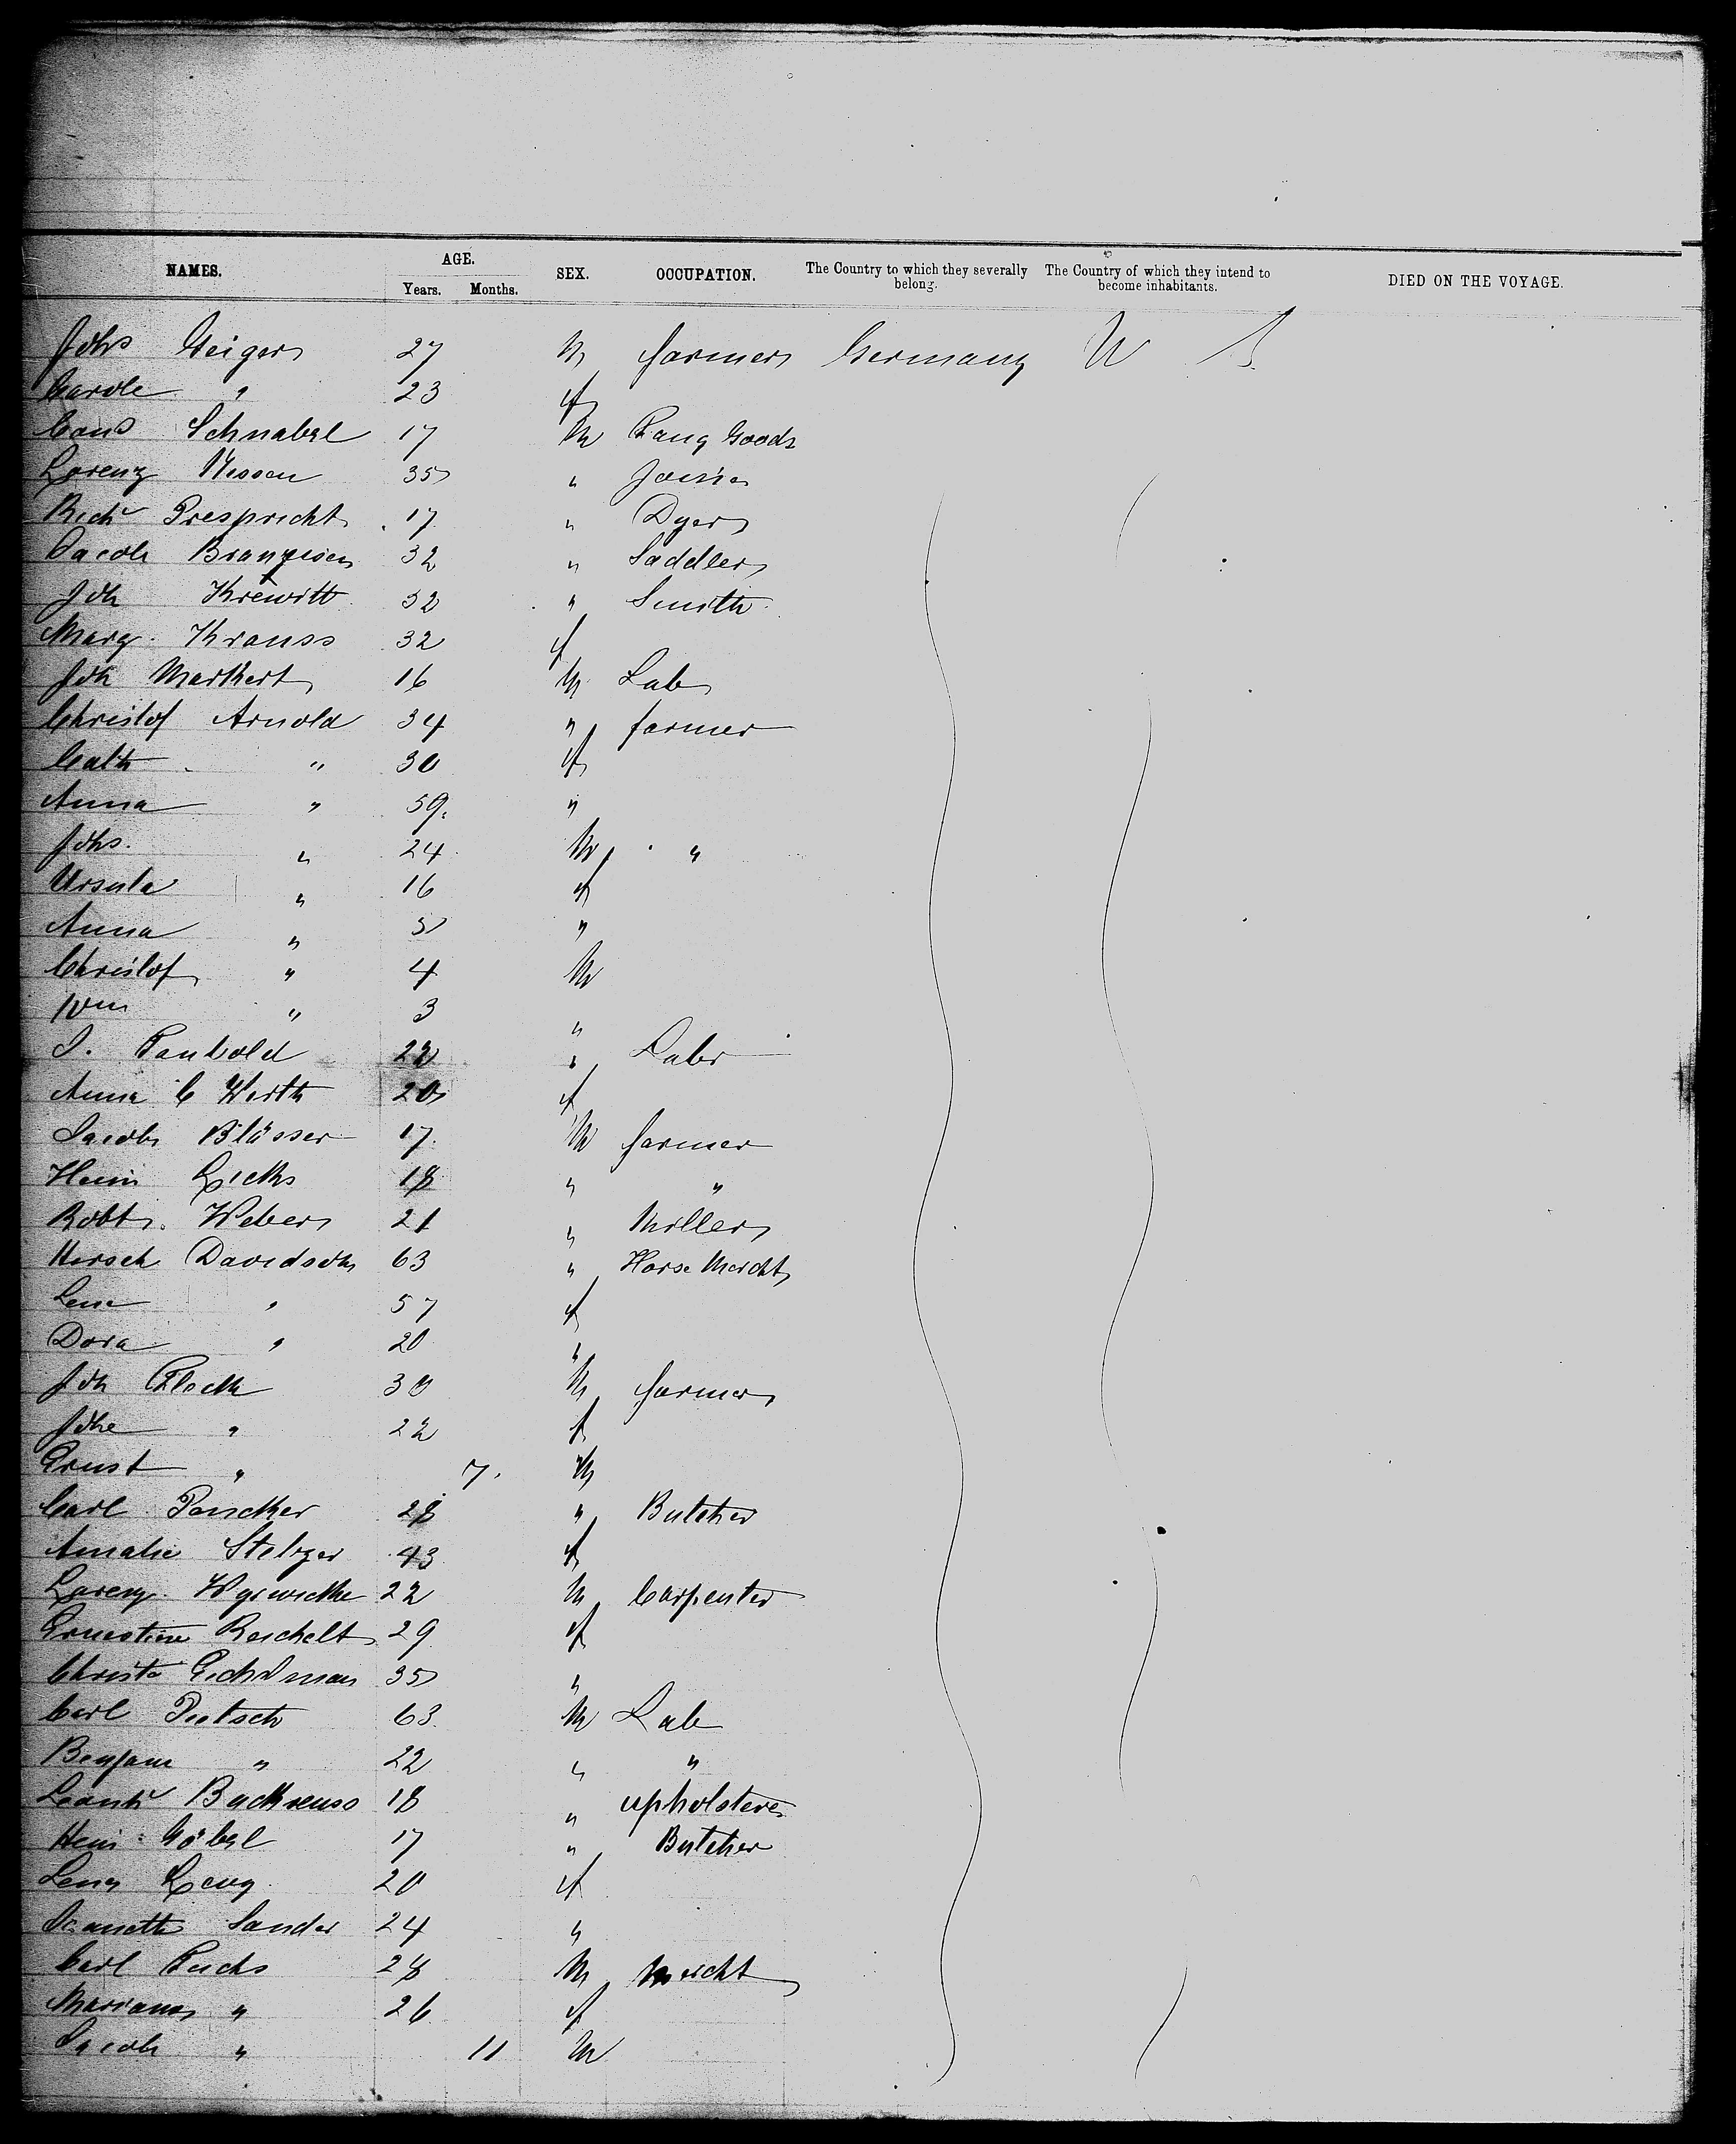 NAMES. AGE. SEX. OCCUPATION. The Country to which they severally belong. The Country of which they intend to become inhabitants. DIED ON THE VOYAGE.
Years. Months.
Johs Geiger 27 M farmer Germany U S
Carole " 23 f
Cons Schnabel 17 M Goods
Lorenz Nissen 35 "
Rich Prespricht 17 " Dyer
Jacob 32 " Saddler
Joh Krewitt 32 " Smith
Marg. Krauss 32 f
Joh Markert 16 M Lab
Christof Arnold 34 " farmer
Cath " 30 f
Anna " 59 "
Johs. " 24 M "
Ursula " 16 f
Anna " 5 "
Christof " 4 M
Wm " 3 "
J. 22 " Labr
Anna C Werth 20 f
Jacob Blässer 17 M farmer
Heinr 18 " "
Robt. Weber 21 " Miller
Hersch Davidsohn 63 " Horse Mercht
Lene " 57 f
Dora " 20 "
Joh Flock 30 M farmer
Johe " 22 f
Ernst " 7. M
Carl 28 " Butcher
Amalie Stelzer 43 f
Lorenz 22 M Carpenter
Ernestine Reichelt 29 f
Christe 35 "
Carl Pietsch 63 M Lab
Benjam " 22 " "
18 " upholsterer
Hein: Göbel 17 " Butcher
Lena Lang 20 f
Jeanette Sander 24 "
Carl Fuchs 28 M Mercht
Mariana " 26 f
Jacob " 11 M